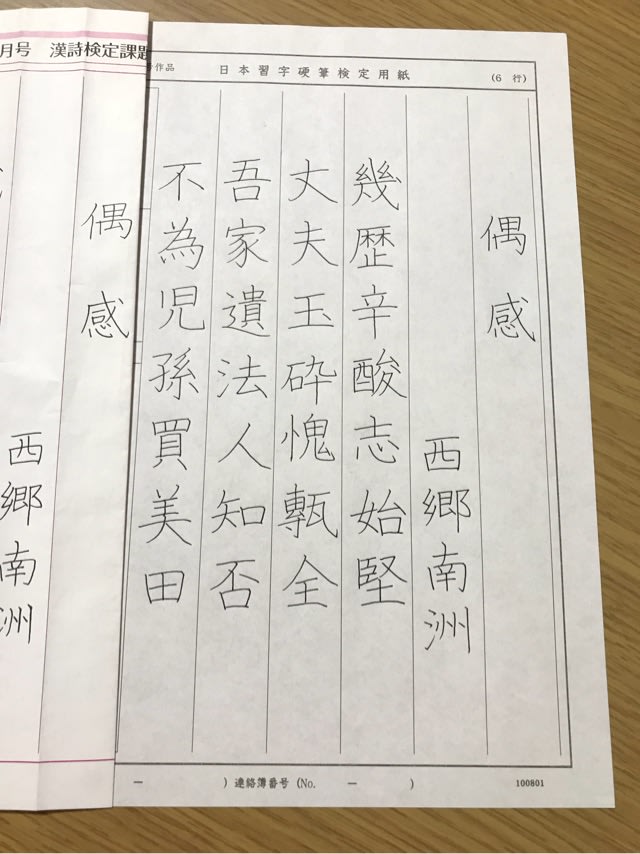 作品 日本習字硬筆検定用紙 (6 行)
偶感
西郷南洲
幾歴辛酸志始堅
丈夫玉砕愧甎全
吾家遺法人知否
不為児孫買美田
－ ) 連絡簿番号 (No. － )
100801
月号 漢詩検定課題
偶感
西郷南洲